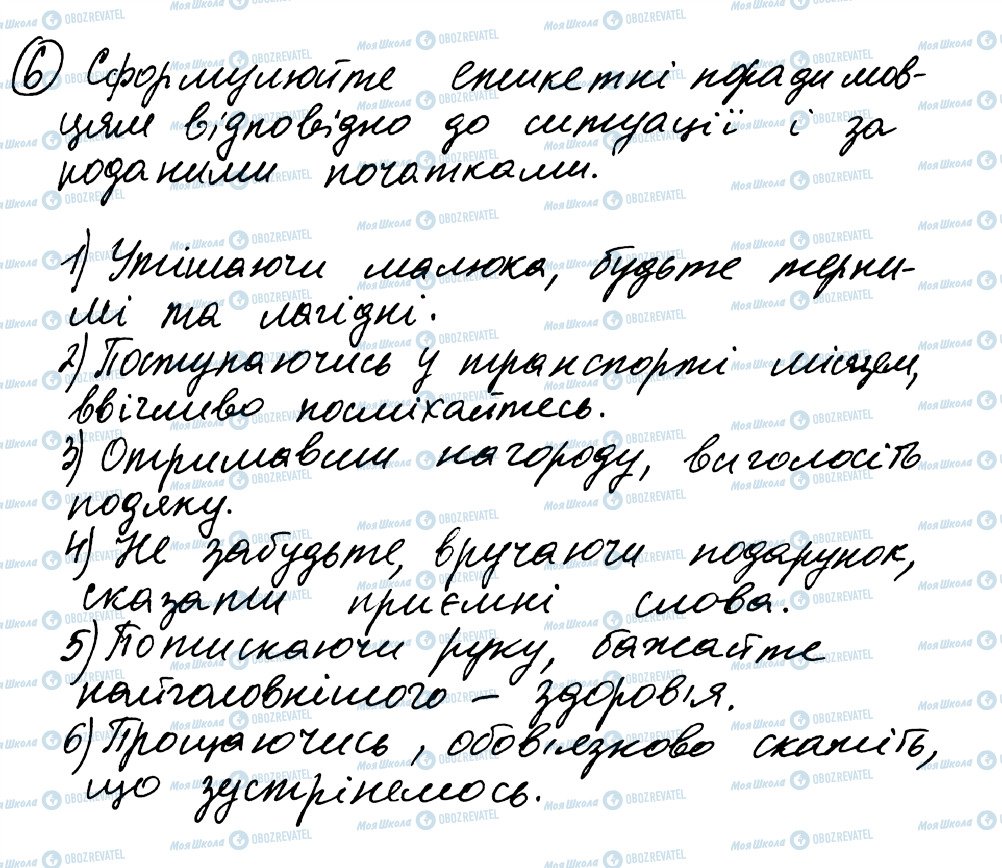 6 Сформулюйте етикетні поради мов-
цям відповідно до ситуації і за
поданими початками.
1) Утішаючи малюка, будьте терпи-
мі та лагідні.
2) Поступаючись у транспорті місцем,
ввічливо посміхайтесь.
3) Отримавши нагороду, виголосіть
подяку.
4) Не забудьте, вручаючи подарунок,
сказати приємні слова.
5) Потискаючи руку, бажайте
найголовнішого – здоров'я.
6) Прощаючись, обов'язково скажіть,
що зустрінемось.